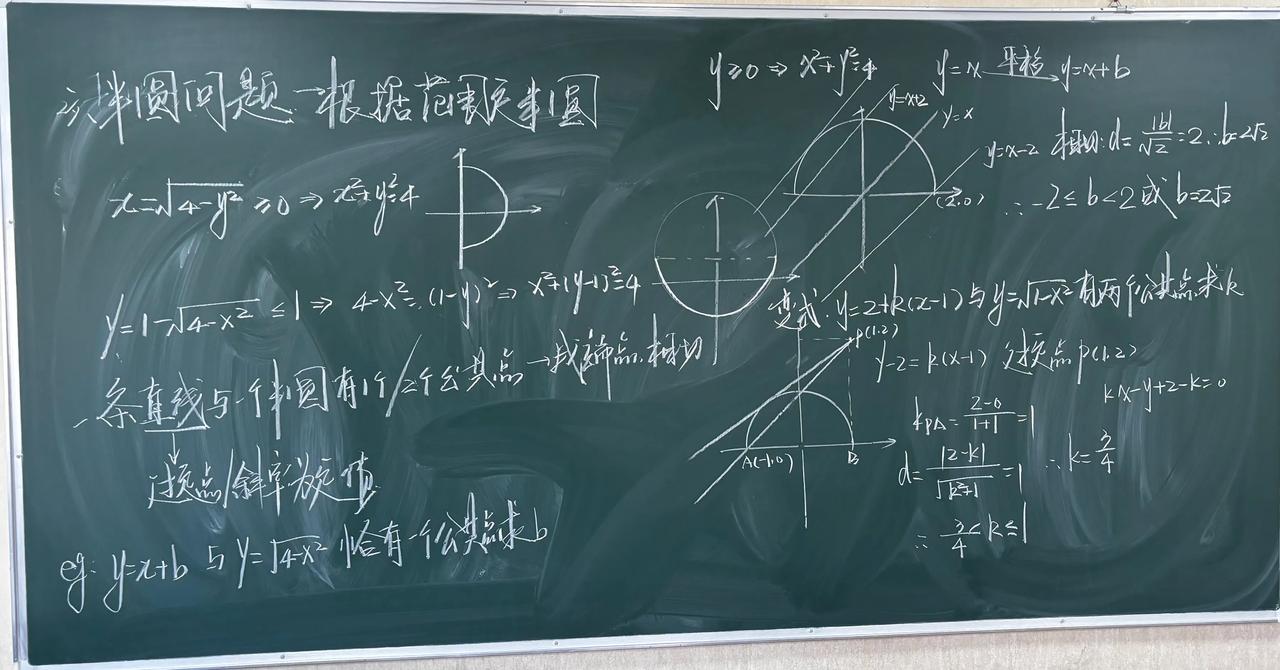 六、半圆问题→根据范围定半圆
x=√(4-y²) ≥0 ⇒ x²+y²=4
y=1-√(4-x²) ≤1 ⇒ 4-x²=(1-y)² ⇒ x²+(y-1)²=4
一条直线与一个半圆有1个/2个公共点→找端点、相切
↓
过定点/斜率为定值
eg: y=x+b 与 y=√(4-x²) 恰有一个公共点求b
y≥0 ⇒ x²+y²=4
y=x 平移→ y=x+b
y=x+2
y=x
y=x-2
(2,0)
相切: d=|b|/√2=2 ∴b=2√2
∴ -2≤b<2或b=2√2
变式: y=2+k(x-1)与y=√(1-x²)有两个公共点求k
P(1,2)
y-2=k(x-1) 过定点P(1,2)
kx-y+2-k=0
A(-1,0)
B
k_PA=(2-0)/(1+1)=1
d=|2-k|/√(k²+1)=1 ∴k=3/4
∴ 3/4<k≤1